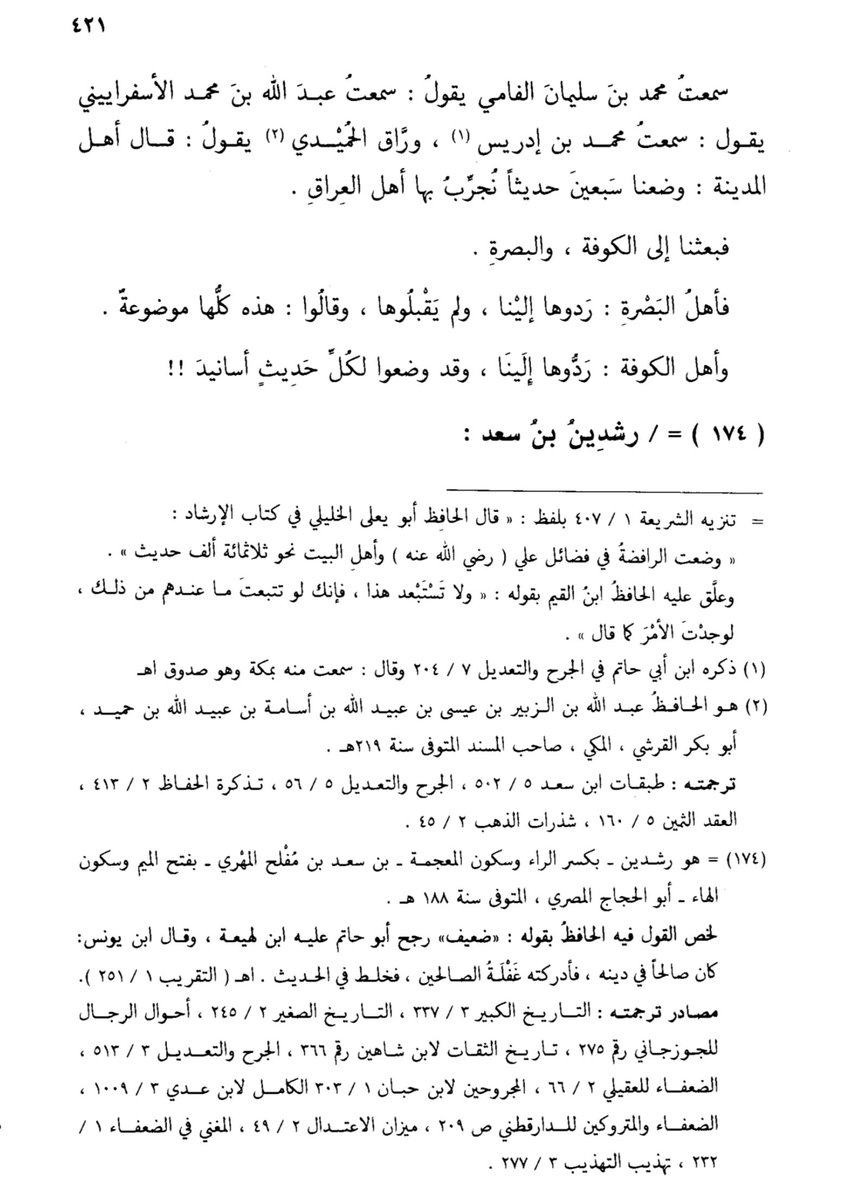 ٤٢١
سمعتُ محمد بنَ سليمانَ الفامي يقولُ : سمعتُ عبدَ الله بنَ محمد الأسفراييني
يقول : سمعتُ محمد بن إدريس (١) ، ورَّاق الحُمَيْدي (٢) يقولُ : قال أهل
المدينة : وضعنا سَبعينَ حديثاً نُجرِّبُ بها أهل العِراقِ .
فبعثنا إلى الكوفة ، والبصرةِ .
فأهلُ البَصْرةِ : رَدوها إليْنا ، ولم يَقْبلُوها ، وقالُوا : هذه كلُّها موضوعةٌ .
وأهل الكوفة : رَدُّوها إلَينَا ، وقد وضعوا لكُلِّ حَدِيثٍ أسانيدَ !!
( ١٧٤ ) = / رشدِينُ بنُ سعد :
= تنزيه الشريعة ١ / ٤٠٧ بلفظ : « قال الحافِظ أبو يعلى الخليلي في كتاب الإرشاد :
« وضعت الرافضةُ في فضائل علي ( رضي الله عنه ) وأهلِ البيت نحو ثلاثمائة ألف حديث » .
وعلَّق عليه الحافظُ ابنُ القيم بقوله : « ولا تَسْتَبْعد هذا ، فإنك لو تتبعتَ ما عندهم من ذلك ،
لوجدْتَ الأمْرَ كما قال » .
(١) ذكره ابن أبي حاتم في الجرح والتعديل ٧ / ٢٠٤ وقال : سمعت منه بمكة وهو صدوق اهـ
(٢) هو الحافظُ عبد الله بن الزبير بن عيسى بن عبيد الله بن أسامة بن عبيد الله بن حميد ،
أبو بكر القرشي ، المكي ، صاحب المسند المتوفى سنة ٢١٩هـ .
ترجمته : طبقات ابن سعد ٥ / ٥٠٢ ، الجرح والتعديل ٥ / ٥٦ ، تذكرة الحفاظ ٢ / ٤١٣ ،
العقد الثمين ٥ / ١٦٠ ، شذرات الذهب ٢ / ٤٥ .
(١٧٤) = هو رشدين ـ بكسر الراء وسكون المعجمة ـ بن سعد بن مُفْلح المهْري ـ بفتح الميم وسكون
الهاء ـ أبو الحجاج المصري ، المتوفى سنة ١٨٨ هـ .
لخص القول فيه الحافظُ بقوله : «ضعيف» رجح أبو حاتم عليه ابن لهيعة ، وقال ابن يونس:
كان صالحاً في دينه ، فأدركته غَفْلَةُ الصالحين ، فخلط في الحديث . اهـ ( التقريب ١ / ٢٥١ ).
مصادر ترجمته : التاريخ الكبير ٣ / ٣٣٧ ، التاريخ الصغير ٢ / ٢٤٥ ، أحوال الرجال
للجوزجاني رقم ٢٧٥ ، تاريخ الثقات لابن شاهين رقم ٣٦٦ ، الجرح والتعديل ٣ / ٥١٣ ،
الضعفاء للعقيلي ٢ / ٦٦ ، المجروحين لابن حبان ١ / ٣٠٣ الكامل لابن عدي ٣ / ١٠٠٩ ،
الضعفاء والمتروكين للدارقطني ص ٢٠٩ ، ميزان الاعتدال ٢ / ٤٩ ، المغني في الضعفاء ١ /
٢٣٢ ، تهذيب التهذيب ٣ / ٢٧٧ .